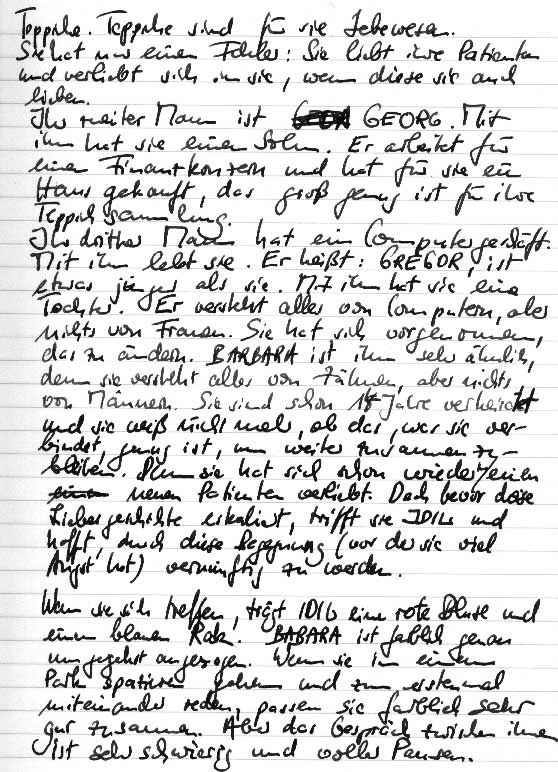 Teppiche. Teppiche sind für sie Lebewesen.
Sie hat nur einen Fehler: Sie liebt ihre Patienten
und verliebt sich in sie, wenn diese sie auch
lieben.
Ihr zweiter Mann ist GEORG. Mit
ihm hat sie einen Sohn. Er arbeitet für
einen Finanzkonzern und hat für sie ein
Haus gekauft, das groß genug ist für ihre
Teppichsammlung.
Ihr dritter Mann hat ein Computergeschäft.
Mit ihm lebt sie. Er heißt: GREGOR, ist
etwas jünger als sie. Mit ihm hat sie eine
Tochter. Er versteht alles von Computern, aber
nichts von Frauen. Sie hat sich vorgenommen,
das zu ändern. BARBARA ist ihm sehr ähnlich,
denn sie versteht alles von Zähnen, aber nichts
von Männern. Sie sind schon 14 Jahre verheiratet
und sie weiß nicht mehr, ob das, was sie ver-
bindet, genug ist, um weiter zusammen zu-
bleiben. Denn sie hat sich schon wieder in einen
neuen Patienten verliebt. Doch bevor diese
Liebesgeschichte eskaliert, trifft sie IDIL und
hofft, durch diese Begegnung (vor der sie viel
Angst hat) vernünftig zu werden.
Wenn sie sich treffen, trägt IDIL eine rote Bluse und
einen blauen Rock. BABARA ist farblich genau
umgekehrt angezogen. Wenn sie in einem
Park spazieren gehen und zum erstenmal
miteinander reden, passen sie farblich sehr
gut zusammen. Aber das Gespräch zwischen ihnen
ist sehr schwierig und voller Pausen.